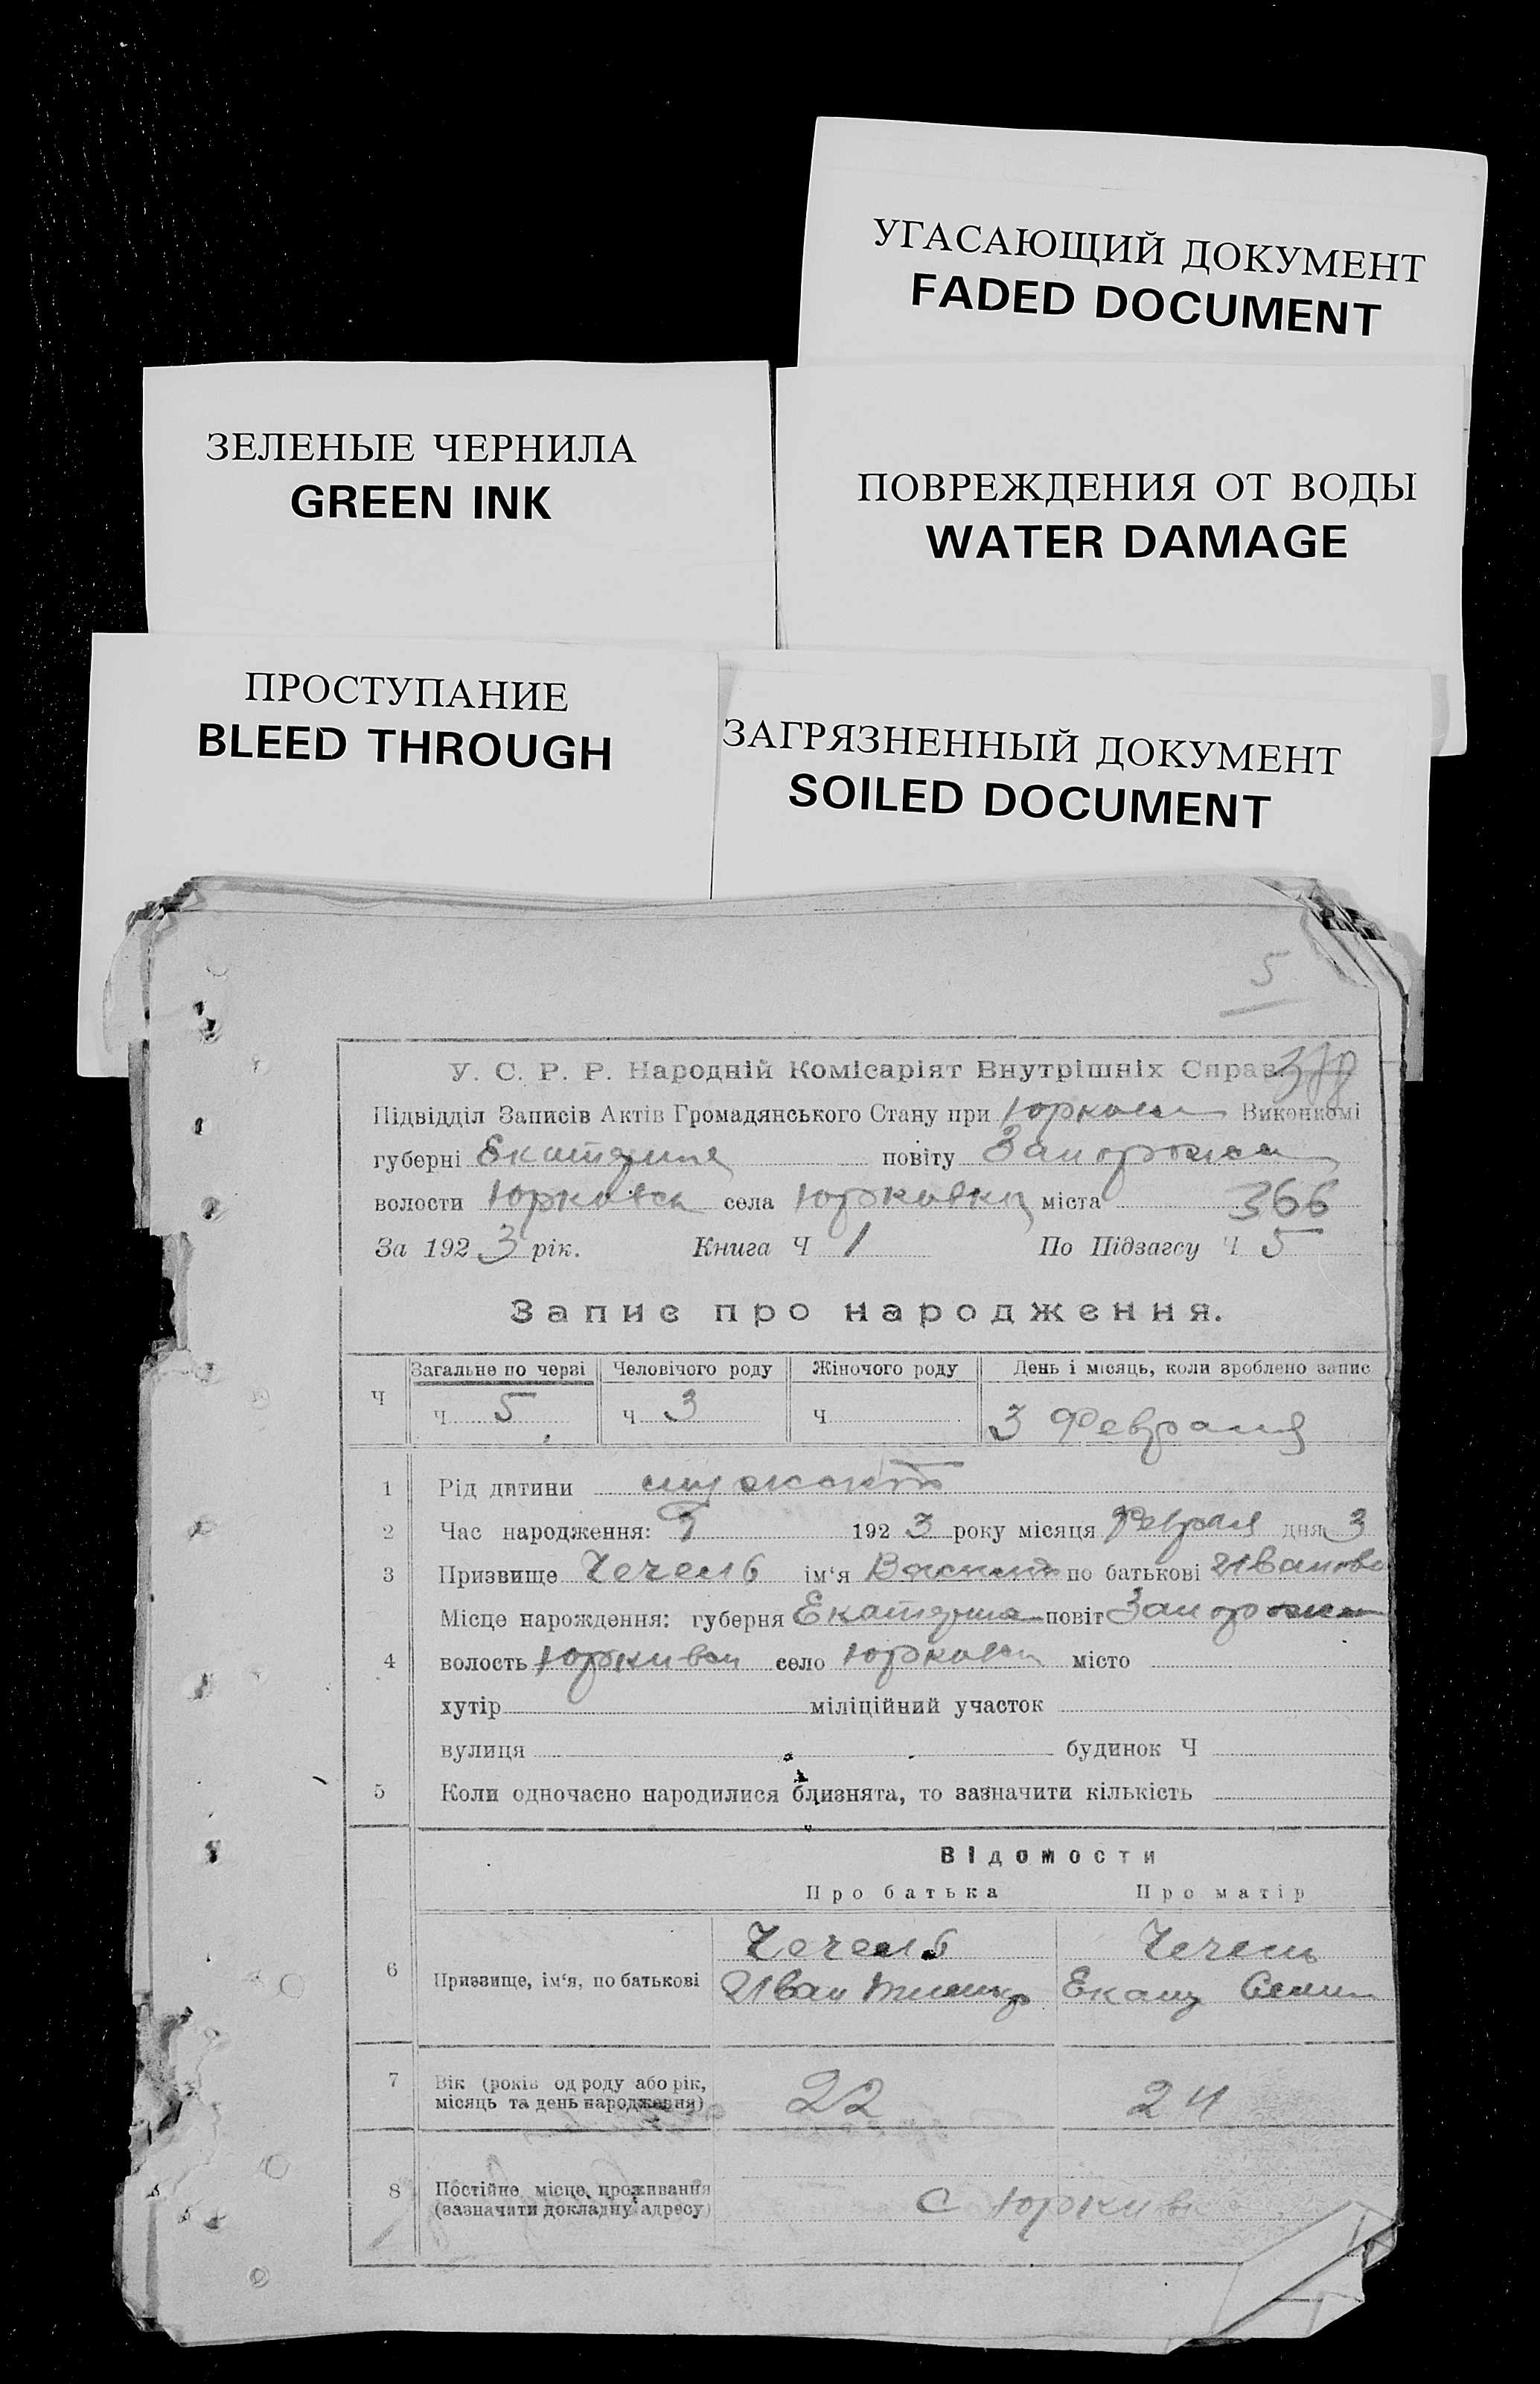 УГАСАЮЩИЙ ДОКУМЕНТ
FADED DOCUMENT
ЗЕЛЕНЫЕ ЧЕРНИЛА
GREEN INK
ПОВРЕЖДЕНИЯ ОТ ВОДЫ
WATER DAMAGE
ПРОСТУПАНИЕ
BLEED THROUGH
ЗАГРЯЗНЕННЫЙ ДОКУМЕНТ
SOILED DOCUMENT
5
У. С. Р. Р. Народній Комісаріят Внутрішніх Справ.
Підвідділ Записів Актів Громадянського Стану при Юрковск Виконкомі
губерні Екатерин повіту Запорож
волости Юрковск села Юрковки міста 366
За 192 3 рік. Книга Ч 1 По Підзагсу Ч 5
Запис про народження.
Загальне по черзі Чоловічого роду Жіночого роду День і місяць, коли зроблено запис
Ч Ч 5 Ч 3 Ч 3 Февраля
1 Рід дитини
2 Час народження: 192 3 року місяця Февраля дня 3
3 Призвище Чечель ім‘я Василий по батькові Иванов
Місце народження: губерня Екатерин повіт Запорож
4 волость Юрковск село Юрковк місто
хутір міліційний участок
вулиця будинок Ч
5 Коли одночасно народилися близнята, то зазначити кількість
Відомости
Про батька Про матір
Чечель Чечель
6 Призвище, ім‘я, по батькові Иван Екат
7 Вік (років од роду або рік, місяць та день народження) 22 24
8 Постійне місце проживання (зазначити докладну адресу) С Юркив